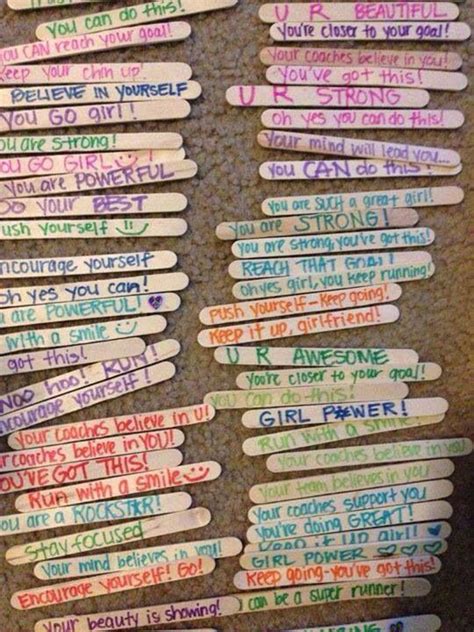 You can do this!
You CAN reach your goal!
Keep your chin up!
BELIEVE IN YOURSELF
You Go girl!
You are strong!
You GO GIRL
You are POWERFUL
Do your BEST
Push yourself
Encourage yourself
Oh yes you can!
You are POWERFUL!
with a smile
got this!
Woo hoo! RUN!
Encourage yourself!
Your coaches believe in U!
Your coaches believe in YOU!
YOU'VE GOT THIS!
Run with a smile
You are a ROCKST★R!
Stay focused
Your mind believes in you!
Encourage yourself! Go!
Your beauty is showing!
U R BEAUTIFUL
You're closer to your goal!
Your coaches believe in you!
You've got this!
U R STRONG
Oh yes you can do this!
Your mind will lead you...
You CAN do this!
You are SUCH a great girl!
You are STRONG!
You are strong, you've got this!
REACH THAT GOAL!
Oh yes girl, you keep running!
Push yourself - Keep going!
Keep it up, girlfriend!
U R AWESOME
You're closer to your goal!
You can do this!
GIRL P*WER!
Run with a smile
Your coaches believe in you!
Your team believes in you
Your coaches support you
You're doing GREAT!
Keep it up girl!
GIRL POWER
Keep going-you've got this!
I can be a super runner!